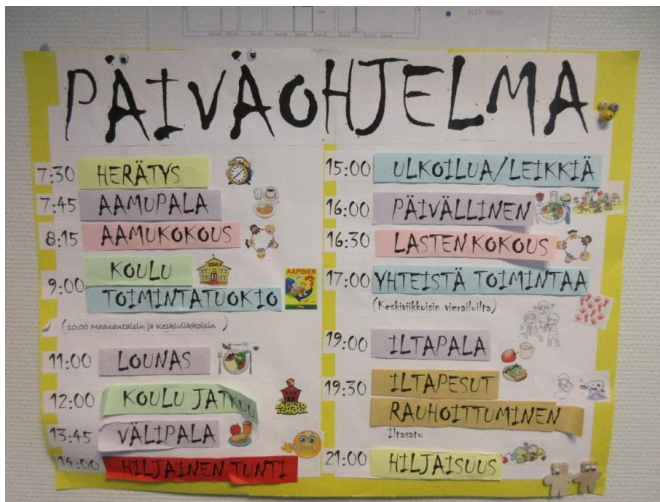 PÄIVÄOHJELMA
7:30 HERÄTYS
7:45 AAMUPALA
8:15 AAMUKOKOUS
9:00 KOULU
TOIMINTATUOKIO
AAPINEN
(10:00 Maanantaisin ja Keskiviikkoisin)
11:00 LOUNAS
12:00 KOULU JATKUU
13:45 VÄLIPALA
14:00 HILJAINEN TUNTI
15:00 ULKOILUA/LEIKKIÄ
16:00 PÄIVÄLLINEN
16:30 LASTEN KOKOUS
17:00 YHTEISTÄ TOIMINTAA
(Keskiviikkoisin vierailuilta)
19:00 ILTAPALA
19:30 ILTAPESUT
RAUHOITTUMINEN
Iltasatu
21:00 HILJAISUUS